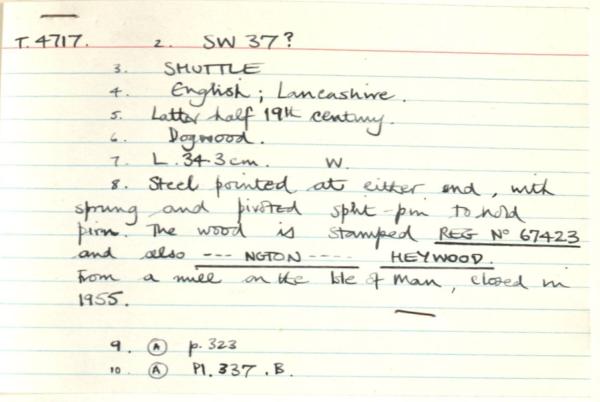 T. 4717. 2. SW 37?
3. SHUTTLE
4. English; Lancashire.
5. Latter half 19th century.
6. Dogwood.
7. L. 34.3cm. W.
8. Steel pointed at either end, with
sprung and pivoted split-pin to hold
pirn. The wood is stamped REG No 67423
and also --- NGTON ---- HEYWOOD.
From a mill on the Isle of Man, closed in
1955.
9. A p. 323
10. A Pl. 337. B.